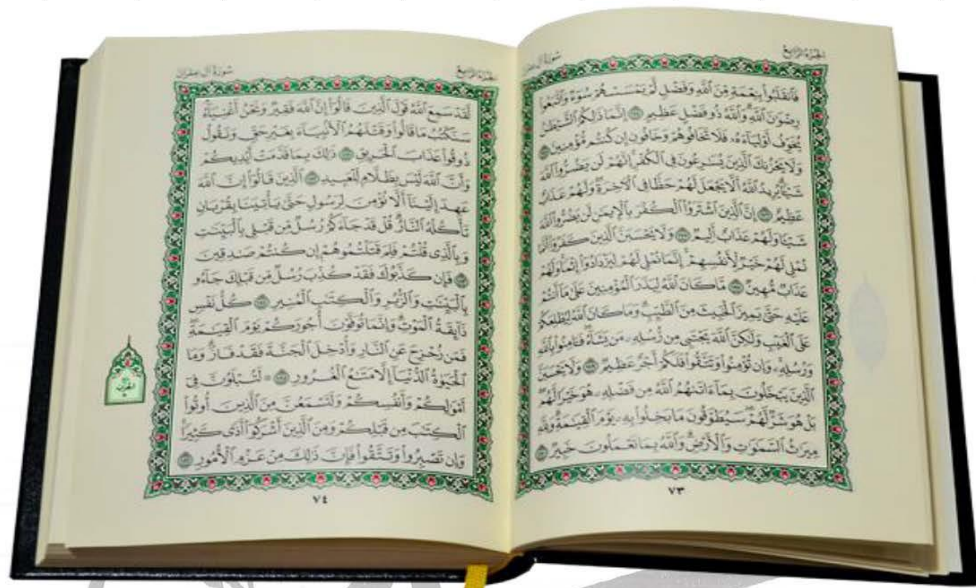 الجزء الرابع سورة آل عمران
فَٱنقَلَبُوا۟ بِنِعْمَةٍ مِّنَ ٱللَّهِ وَفَضْلٍ لَّمْ يَمْسَسْهُمْ سُوٓءٌ وَٱتَّبَعُوا۟
رِضْوَٰنَ ٱللَّهِ وَٱللَّهُ ذُو فَضْلٍ عَظِيمٍ ١٧٤ إِنَّمَا ذَٰلِكُمُ ٱلشَّيْطَٰنُ
يُخَوِّفُ أَوْلِيَآءَهُۥ فَلَا تَخَافُوهُمْ وَخَافُونِ إِن كُنتُم مُّؤْمِنِينَ ١٧٥
وَلَا يَحْزُنكَ ٱلَّذِينَ يُسَٰرِعُونَ فِى ٱلْكُفْرِ إِنَّهُمْ لَن يَضُرُّوا۟ ٱللَّهَ
شَيْـًٔا يُرِيدُ ٱللَّهُ أَلَّا يَجْعَلَ لَهُمْ حَظًّا فِى ٱلْـَٔاخِرَةِ وَلَهُمْ عَذَابٌ
عَظِيمٌ ١٧٦ إِنَّ ٱلَّذِينَ ٱشْتَرَوُا۟ ٱلْكُفْرَ بِٱلْإِيمَٰنِ لَن يَضُرُّوا۟ ٱللَّهَ
شَيْـًٔا وَلَهُمْ عَذَابٌ أَلِيمٌ ١٧٧ وَلَا يَحْسَبَنَّ ٱلَّذِينَ كَفَرُوٓا۟ أَنَّمَا
نُمْلِى لَهُمْ خَيْرٌ لِّأَنفُسِهِمْ إِنَّمَا نُمْلِى لَهُمْ لِيَزْدَادُوٓا۟ إِثْمًا وَلَهُمْ
عَذَابٌ مُّهِينٌ ١٧٨ مَّا كَانَ ٱللَّهُ لِيَذَرَ ٱلْمُؤْمِنِينَ عَلَىٰ مَآ أَنتُمْ
عَلَيْهِ حَتَّىٰ يَمِيزَ ٱلْخَبِيثَ مِنَ ٱلطَّيِّبِ وَمَا كَانَ ٱللَّهُ لِيُطْلِعَكُمْ
عَلَى ٱلْغَيْبِ وَلَٰكِنَّ ٱللَّهَ يَجْتَبِى مِن رُّسُلِهِۦ مَن يَشَآءُ فَـَٔامِنُوا۟ بِٱللَّهِ
وَرُسُلِهِۦ وَإِن تُؤْمِنُوا۟ وَتَتَّقُوا۟ فَلَكُمْ أَجْرٌ عَظِيمٌ ١٧٩ وَلَا يَحْسَبَنَّ
ٱلَّذِينَ يَبْخَلُونَ بِمَآ ءَاتَىٰهُمُ ٱللَّهُ مِن فَضْلِهِۦ هُوَ خَيْرًا لَّهُم
بَلْ هُوَ شَرٌّ لَّهُمْ سَيُطَوَّقُونَ مَا بَخِلُوا۟ بِهِۦ يَوْمَ ٱلْقِيَٰمَةِ وَلِلَّهِ
مِيرَٰثُ ٱلسَّمَٰوَٰتِ وَٱلْأَرْضِ وَٱللَّهُ بِمَا تَعْمَلُونَ خَبِيرٌ ١٨٠
٧٣
الجزء الرابع سورة آل عمران
لَّقَدْ سَمِعَ ٱللَّهُ قَوْلَ ٱلَّذِينَ قَالُوٓا۟ إِنَّ ٱللَّهَ فَقِيرٌ وَنَحْنُ أَغْنِيَآءُ
سَنَكْتُبُ مَا قَالُوا۟ وَقَتْلَهُمُ ٱلْأَنۢبِيَآءَ بِغَيْرِ حَقٍّ وَنَقُولُ
ذُوقُوا۟ عَذَابَ ٱلْحَرِيقِ ١٨١ ذَٰلِكَ بِمَا قَدَّمَتْ أَيْدِيكُمْ
وَأَنَّ ٱللَّهَ لَيْسَ بِظَلَّامٍ لِّلْعَبِيدِ ١٨٢ ٱلَّذِينَ قَالُوٓا۟ إِنَّ ٱللَّهَ
عَهِدَ إِلَيْنَآ أَلَّا نُؤْمِنَ لِرَسُولٍ حَتَّىٰ يَأْتِيَنَا بِقُرْبَانٍ
تَأْكُلُهُ ٱلنَّارُ قُلْ قَدْ جَآءَكُمْ رُسُلٌ مِّن قَبْلِى بِٱلْبَيِّنَٰتِ
وَبِٱلَّذِى قُلْتُمْ فَلِمَ قَتَلْتُمُوهُمْ إِن كُنتُمْ صَٰدِقِينَ
١٨٣ فَإِن كَذَّبُوكَ فَقَدْ كُذِّبَ رُسُلٌ مِّن قَبْلِكَ جَآءُو
بِٱلْبَيِّنَٰتِ وَٱلزُّبُرِ وَٱلْكِتَٰبِ ٱلْمُنِيرِ ١٨٤ كُلُّ نَفْسٍ
ذَآئِقَةُ ٱلْمَوْتِ وَإِنَّمَا تُوَفَّوْنَ أُجُورَكُمْ يَوْمَ ٱلْقِيَٰمَةِ
فَمَن زُحْزِحَ عَنِ ٱلنَّارِ وَأُدْخِلَ ٱلْجَنَّةَ فَقَدْ فَازَ وَمَا
ٱلْحَيَوٰةُ ٱلدُّنْيَآ إِلَّا مَتَٰعُ ٱلْغُرُورِ ١٨٥ ۞ لَتُبْلَوُنَّ فِىٓ
أَمْوَٰلِكُمْ وَأَنفُسِكُمْ وَلَتَسْمَعُنَّ مِنَ ٱلَّذِينَ أُوتُوا۟
ٱلْكِتَٰبَ مِن قَبْلِكُمْ وَمِنَ ٱلَّذِينَ أَشْرَكُوٓا۟ أَذًى كَثِيرًا
وَإِن تَصْبِرُوا۟ وَتَتَّقُوا۟ فَإِنَّ ذَٰلِكَ مِنْ عَزْمِ ٱلْأُمُورِ ١٨٦
٧٤